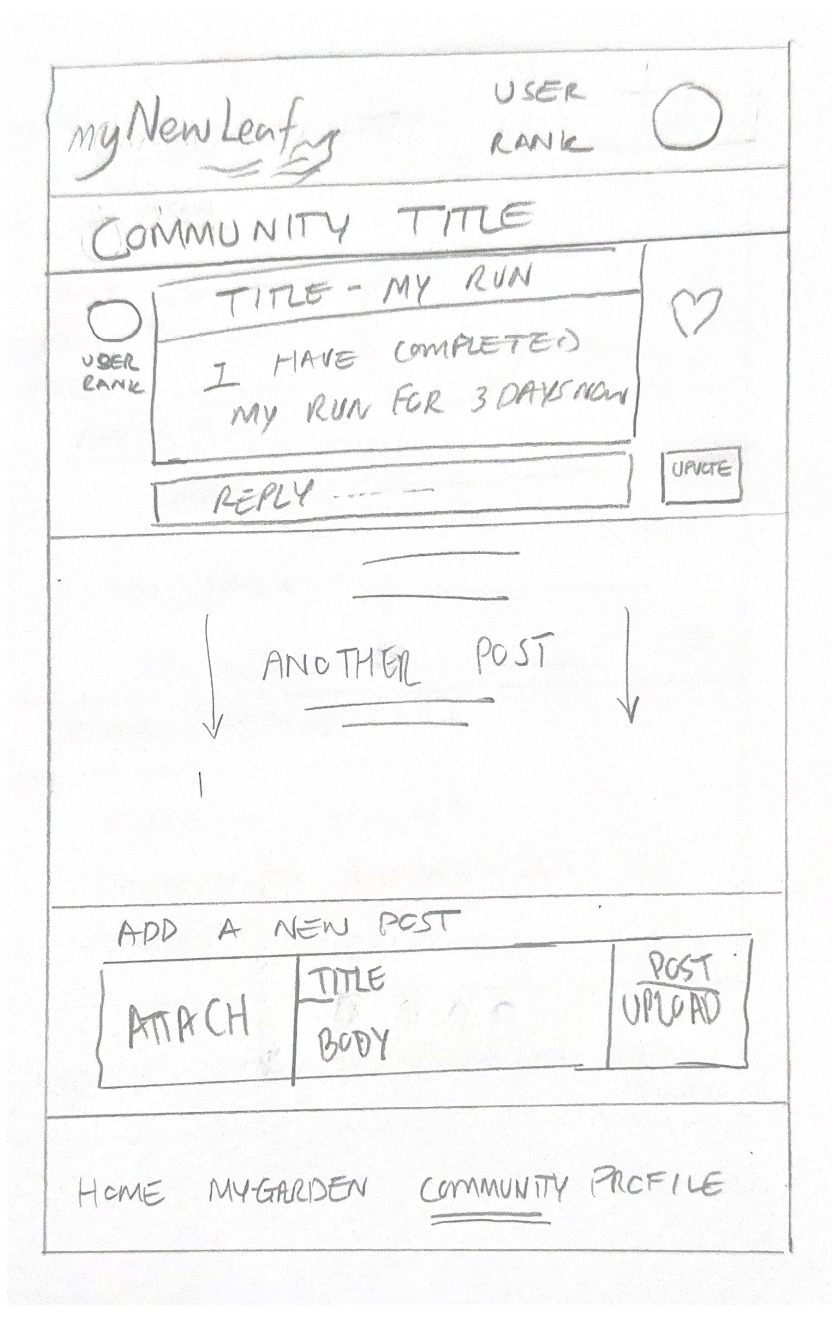 myNewLeaf
USER
RANK
COMMUNITY TITLE
TITLE - MY RUN
USER
RANK
I HAVE COMPLETED
MY RUN FOR 3 DAYS NOW
REPLY ------
ANOTHER POST
ADD A NEW POST
ATTACH
TITLE
BODY
POST
UPLOAD
HOME MY-GARDEN COMMUNITY PROFILE